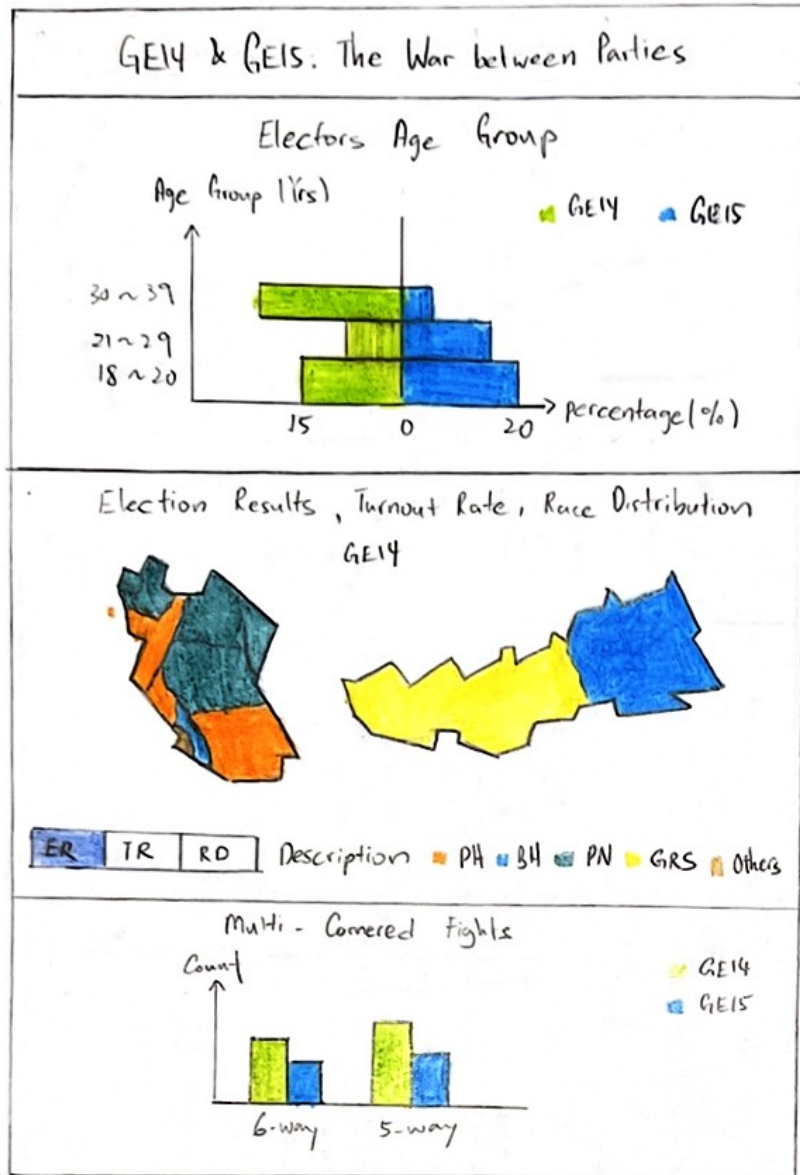 GE14 & GE15: The War between Parties
Electors Age Group
Age Group (Yrs)
GE14 GE15
30 ~ 39
21 ~ 29
18 ~ 20
15 0 20 percentage (%)
Election Results, Turnout Rate, Race Distribution
GE14
ER TR RD Description PH BH PN GRS Others
Multi-Cornered Fights
Count
GE14
GE15
6-way 5-way